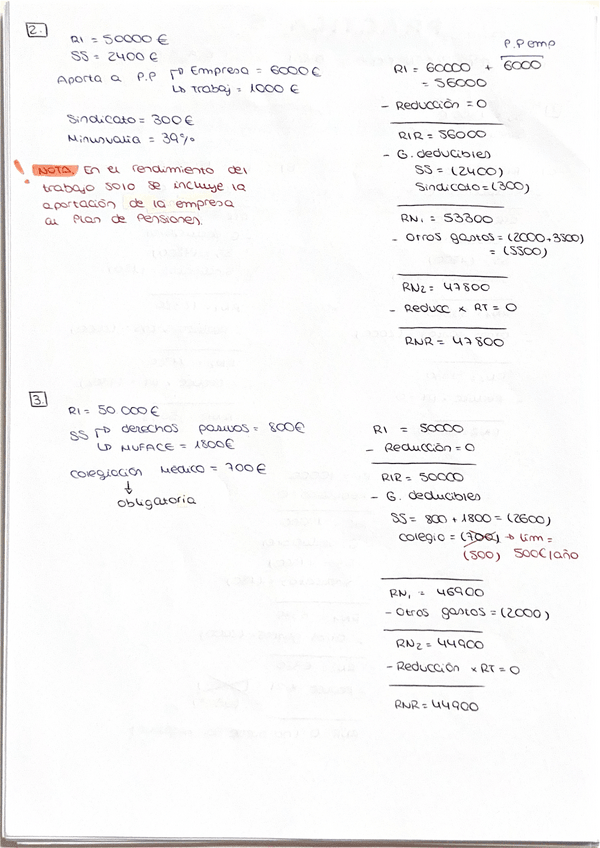 2.
RI = 50000 €
SS = 2400 €
Aporta a P.P ↱ Empresa = 6000 €
↳ Trabaj = 1000 €
Sindicato = 300 €
Minusvalia = 39%
! NOTA. En el rendimiento del
trabajo solo se incluye la
aportación de la empresa
al Plan de Pensiones.
P.P emp
RI = 60000 + 6000
= 56000
- Reducción = 0
RIR = 56000
- G. deducibles
SS = (2400)
Sindicato = (300)
RN1 = 53300
- Otros gastos = (2000+3500)
= (5500)
RN2 = 47800
- Reducc x RT = 0
RNR = 47800
3.
RI = 50 000 €
SS ↱ derechos pasivos = 800 €
↳ MUFACE = 1800 €
Colegiación Médico = 700 €
↓
obligatoria
RI = 50000
- Reducción = 0
RIR = 50000
- G. deducibles
SS = 800 + 1800 = (2600)
Colegio = (700) → lim =
(500) 500€/año
RN1 = 46900
- Otros gastos = (2000)
RN2 = 44900
- Reducción x RT = 0
RNR = 44900